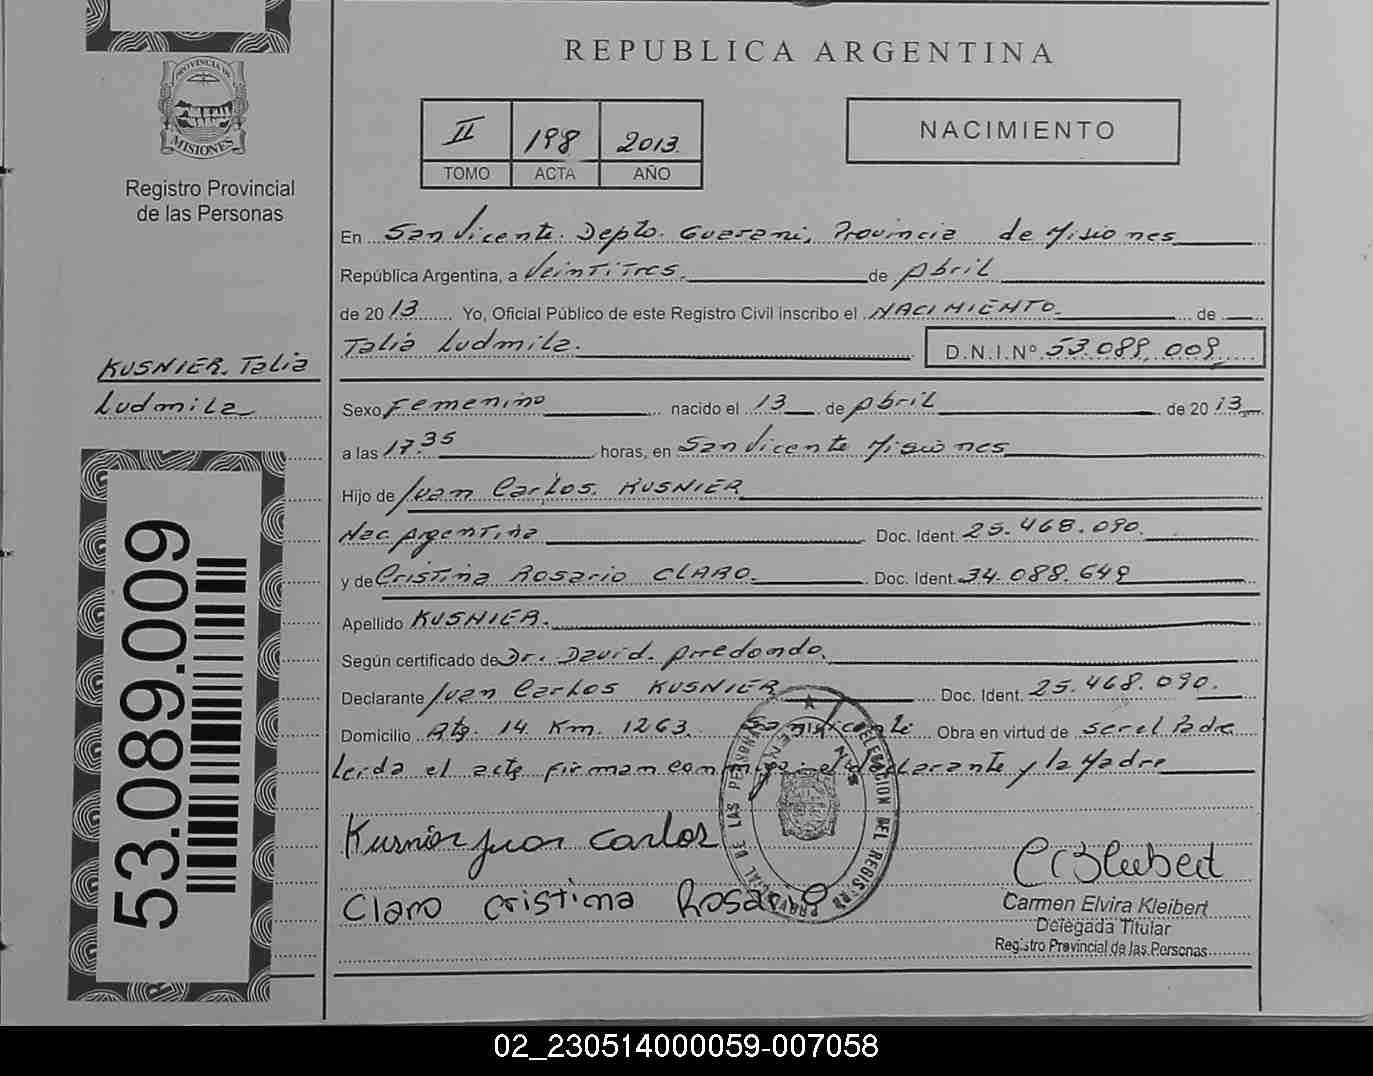 REPUBLICA ARGENTINA
II 198 2013
TOMO ACTA AÑO
NACIMIENTO
PROVINCIA DE
MISIONES
Registro Provincial
de las Personas
En San Vicente. Depto. Guarani, Provincia de Misiones
República Argentina, a Veintitres de Abril
de 2013 Yo, Oficial Público de este Registro Civil inscribo el NACIMIENTO de
Talia Ludmila. D.N.I.Nº 53.089.009
KUSNIER. Talia
Ludmila
Sexo Femenino nacido el 13 de Abril de 2013
a las 17.35 horas, en San Vicente Misiones
Hijo de Juan Carlos. KUSNIER
Nac Argentina Doc. Ident. 25.468.090.
y de Cristina Rosario CLARO. Doc. Ident. 34.088.649
Apellido KUSNIER.
Según certificado de Dr. David. Arredondo.
Declarante Juan Carlos KUSNIER Doc. Ident. 25.468.090.
Domicilio Rta. 14 Km. 1263. San Vicente Obra en virtud de ser el Padre
Leida el acta firman conmigo: el declarante y la Madre
53.089.009
Kusnier Juan Carlos
Claro Cristina Rosario
DELEGACION DEL REGISTRO PROVINCIAL DE LAS PERSONAS
SAN VICENTE
Carmen Elvira Kleibert
Delegada Titular
Registro Provincial de las Personas
02_230514000059-007058